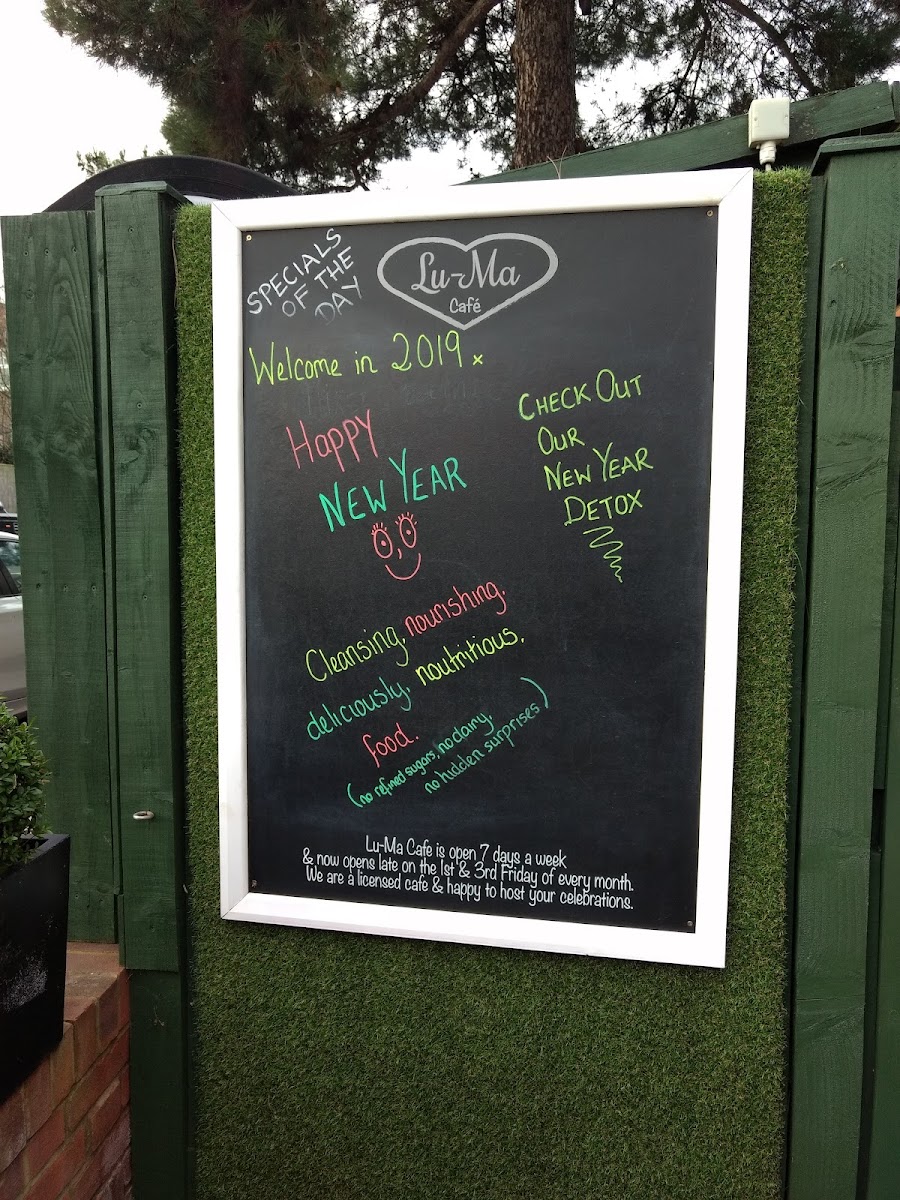 SPECIALS
OF THE
DAY
Lu-Ma
Café
Welcome in 2019 x
HAPPY
NEW YEAR
CHECK OUT
OUR
NEW YEAR
DETOX
Cleansing, nourishing,
deliciously, noutritious,
food.
(no refined sugars, no dairy,
no hidden surprises)
Lu-Ma Cafe is open 7 days a week
& now opens late on the 1st & 3rd Friday of every month.
We are a licensed cafe & happy to host your celebrations.